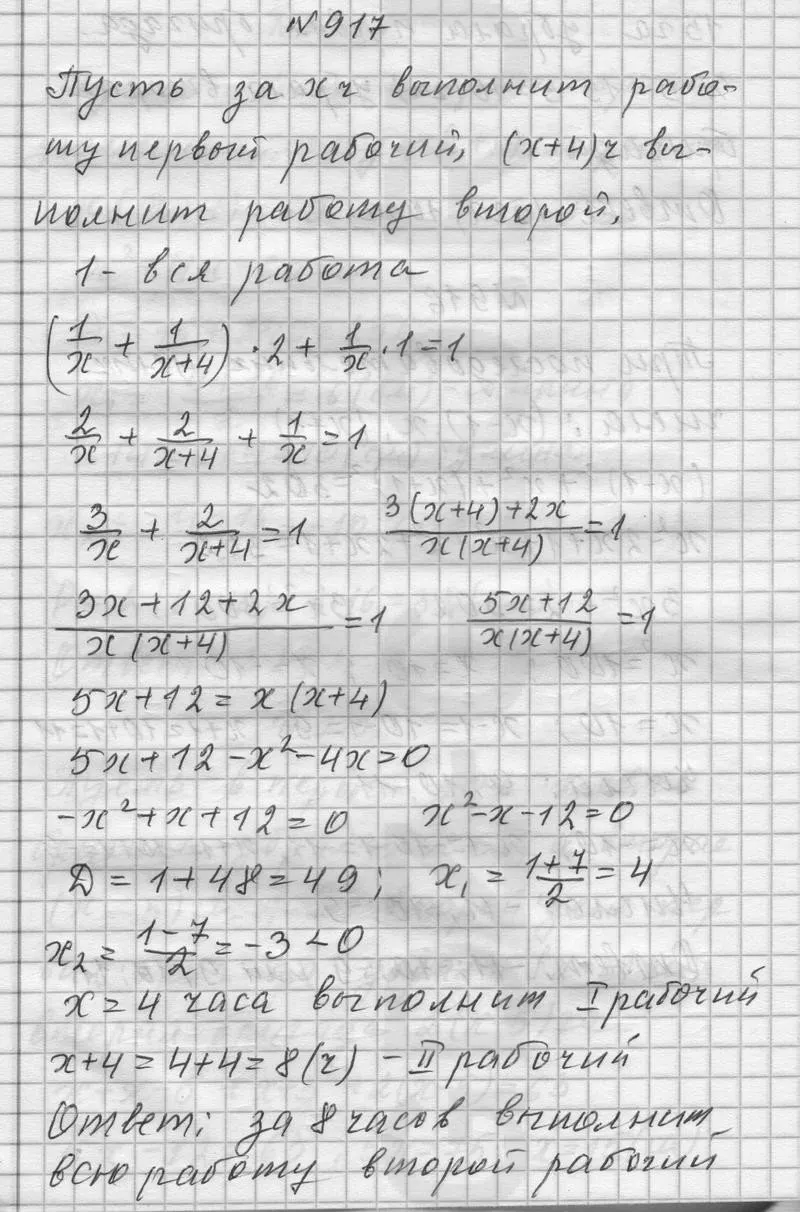 №917
Пусть за x ч выполнит рабо-
ту первый рабочий, (x+4) ч вы-
полнит работу второй,
1 - вся работа
(1/x + 1/(x+4)) · 2 + 1/x · 1 = 1
2/x + 2/(x+4) + 1/x = 1
3/x + 2/(x+4) = 1    (3(x+4)+2x)/(x(x+4)) = 1
(3x+12+2x)/(x(x+4)) = 1    (5x+12)/(x(x+4)) = 1
5x+12 = x(x+4)
5x+12-x²-4x=0
-x²+x+12=0    x²-x-12=0
D = 1+48=49;    x₁ = (1+7)/2 = 4
x₂ = (1-7)/2 = -3 < 0
x = 4 часа выполнит I рабочий
x+4 = 4+4 = 8(ч) - II рабочий
Ответ: за 8 часов выполнит
всю работу второй рабочий